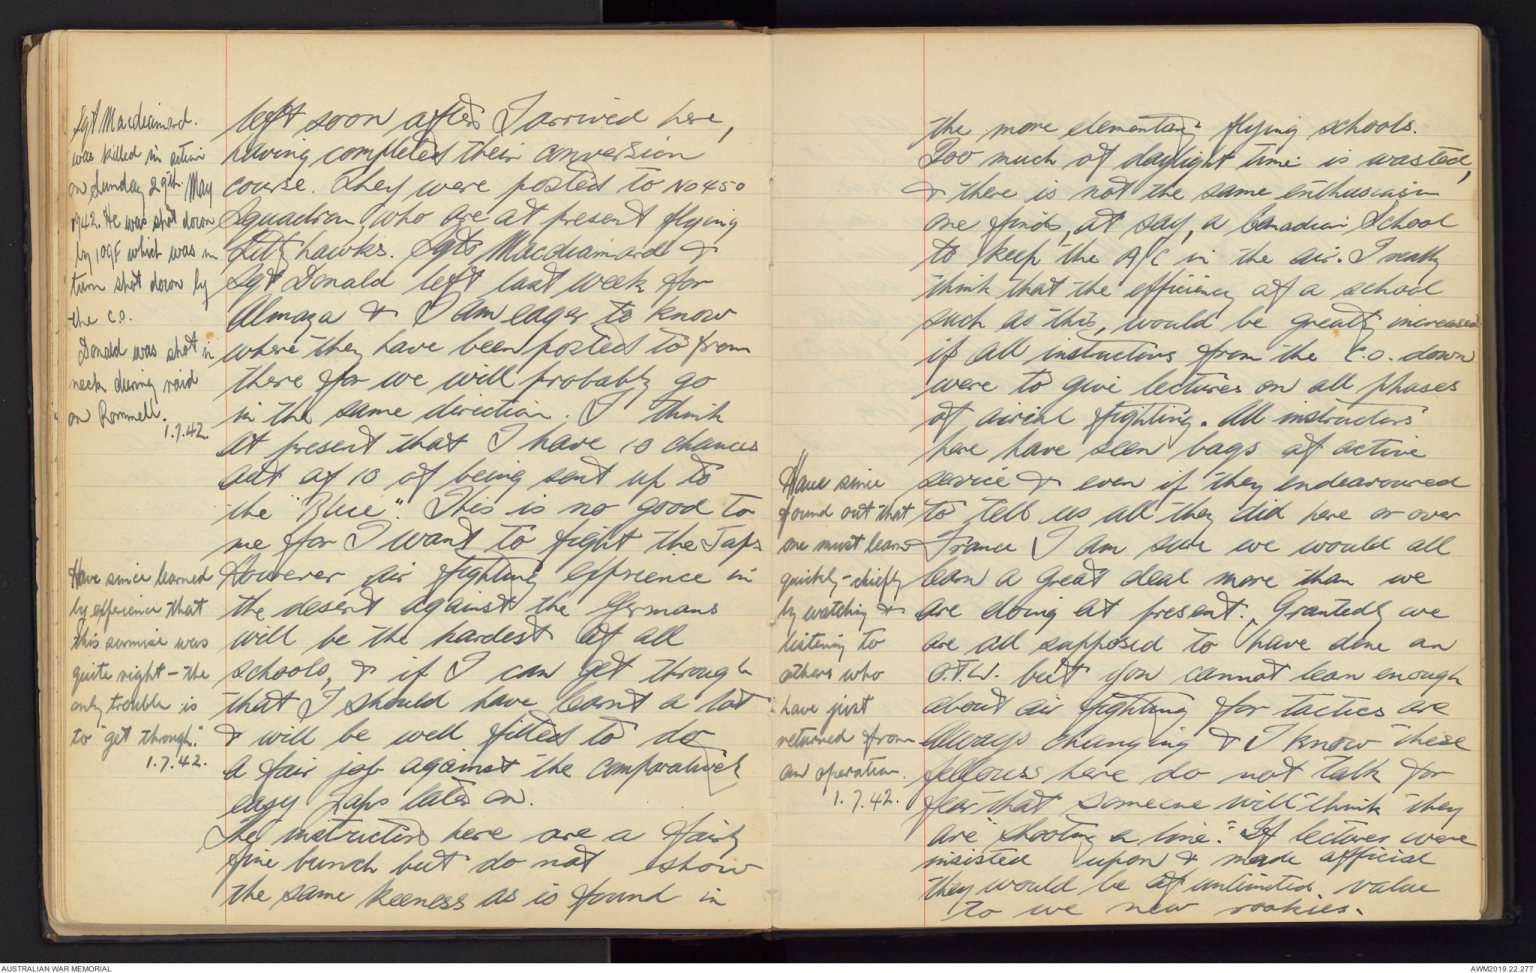 Sgt Macdiarmid.
was killed in action
on Sunday 29th May
1942. He was shot down
by 109F which was in
turn shot down by
the C.O.
Donald was shot in
neck during raid
on Rommell.
1.7.42.
Have since learned
by experience that
this surmise was
quite right - the
only trouble is
to "get through."
1.7.42.
left soon after I arrived here,
having completed their conversion
course. They were posted to No 450
Squadron, who are at present flying
Kittihawks. Sgts Macdiarmid &
Sgt Donald left last week for
Almaza & I am eager to know
where they have been posted to from
there for we will probably go
in the same direction. I think
at present that I have 10 chances
out of 10 of being sent up to
the "Blue". This is no good to
me for I want to fight the Japs
However air fighting experience in
the desert against the Germans
will be the hardest of all
schools, & if I can get through
that I should have learnt a lot
& will be well fitted to do
a fair job against the comparatively
easy Japs later on.
The instructors here are a fairly
fine bunch but do not show
the same keeness as is found in
the more elementary flying schools.
Too much of daylight time is wasted,
& there is not the same enthusiasm
one finds, at say, a Canadian School
to keep the A/C in the air. I really
think that the efficiency of a school
such as this, would be greatly increased
if all instructors from the C.O. down
were to give lectures on all phases
of aerial fighting. All instructors
here have seen bags of active
service & even if they endeavoured
to tell us all they did here or over
France I am sure we would all
learn a great deal more than we
are doing at present. Grantedly we
are all supposed to have done an
O.T.U. but you cannot learn enough
about air fighting for tactics are
always changing & I know these
fellows here do not talk for
fear that someone will think they
are "shooting a line." If lectures were
insisted upon & made official
they would be of unlimited value
to we new rookies.
Have since
found out that
one must learn
quickly - chiefly
by watching &
listening to
others who
have just
returned from
an operation.
1.7.42.
AUSTRALIAN WAR MEMORIAL
AWM2019.22.277